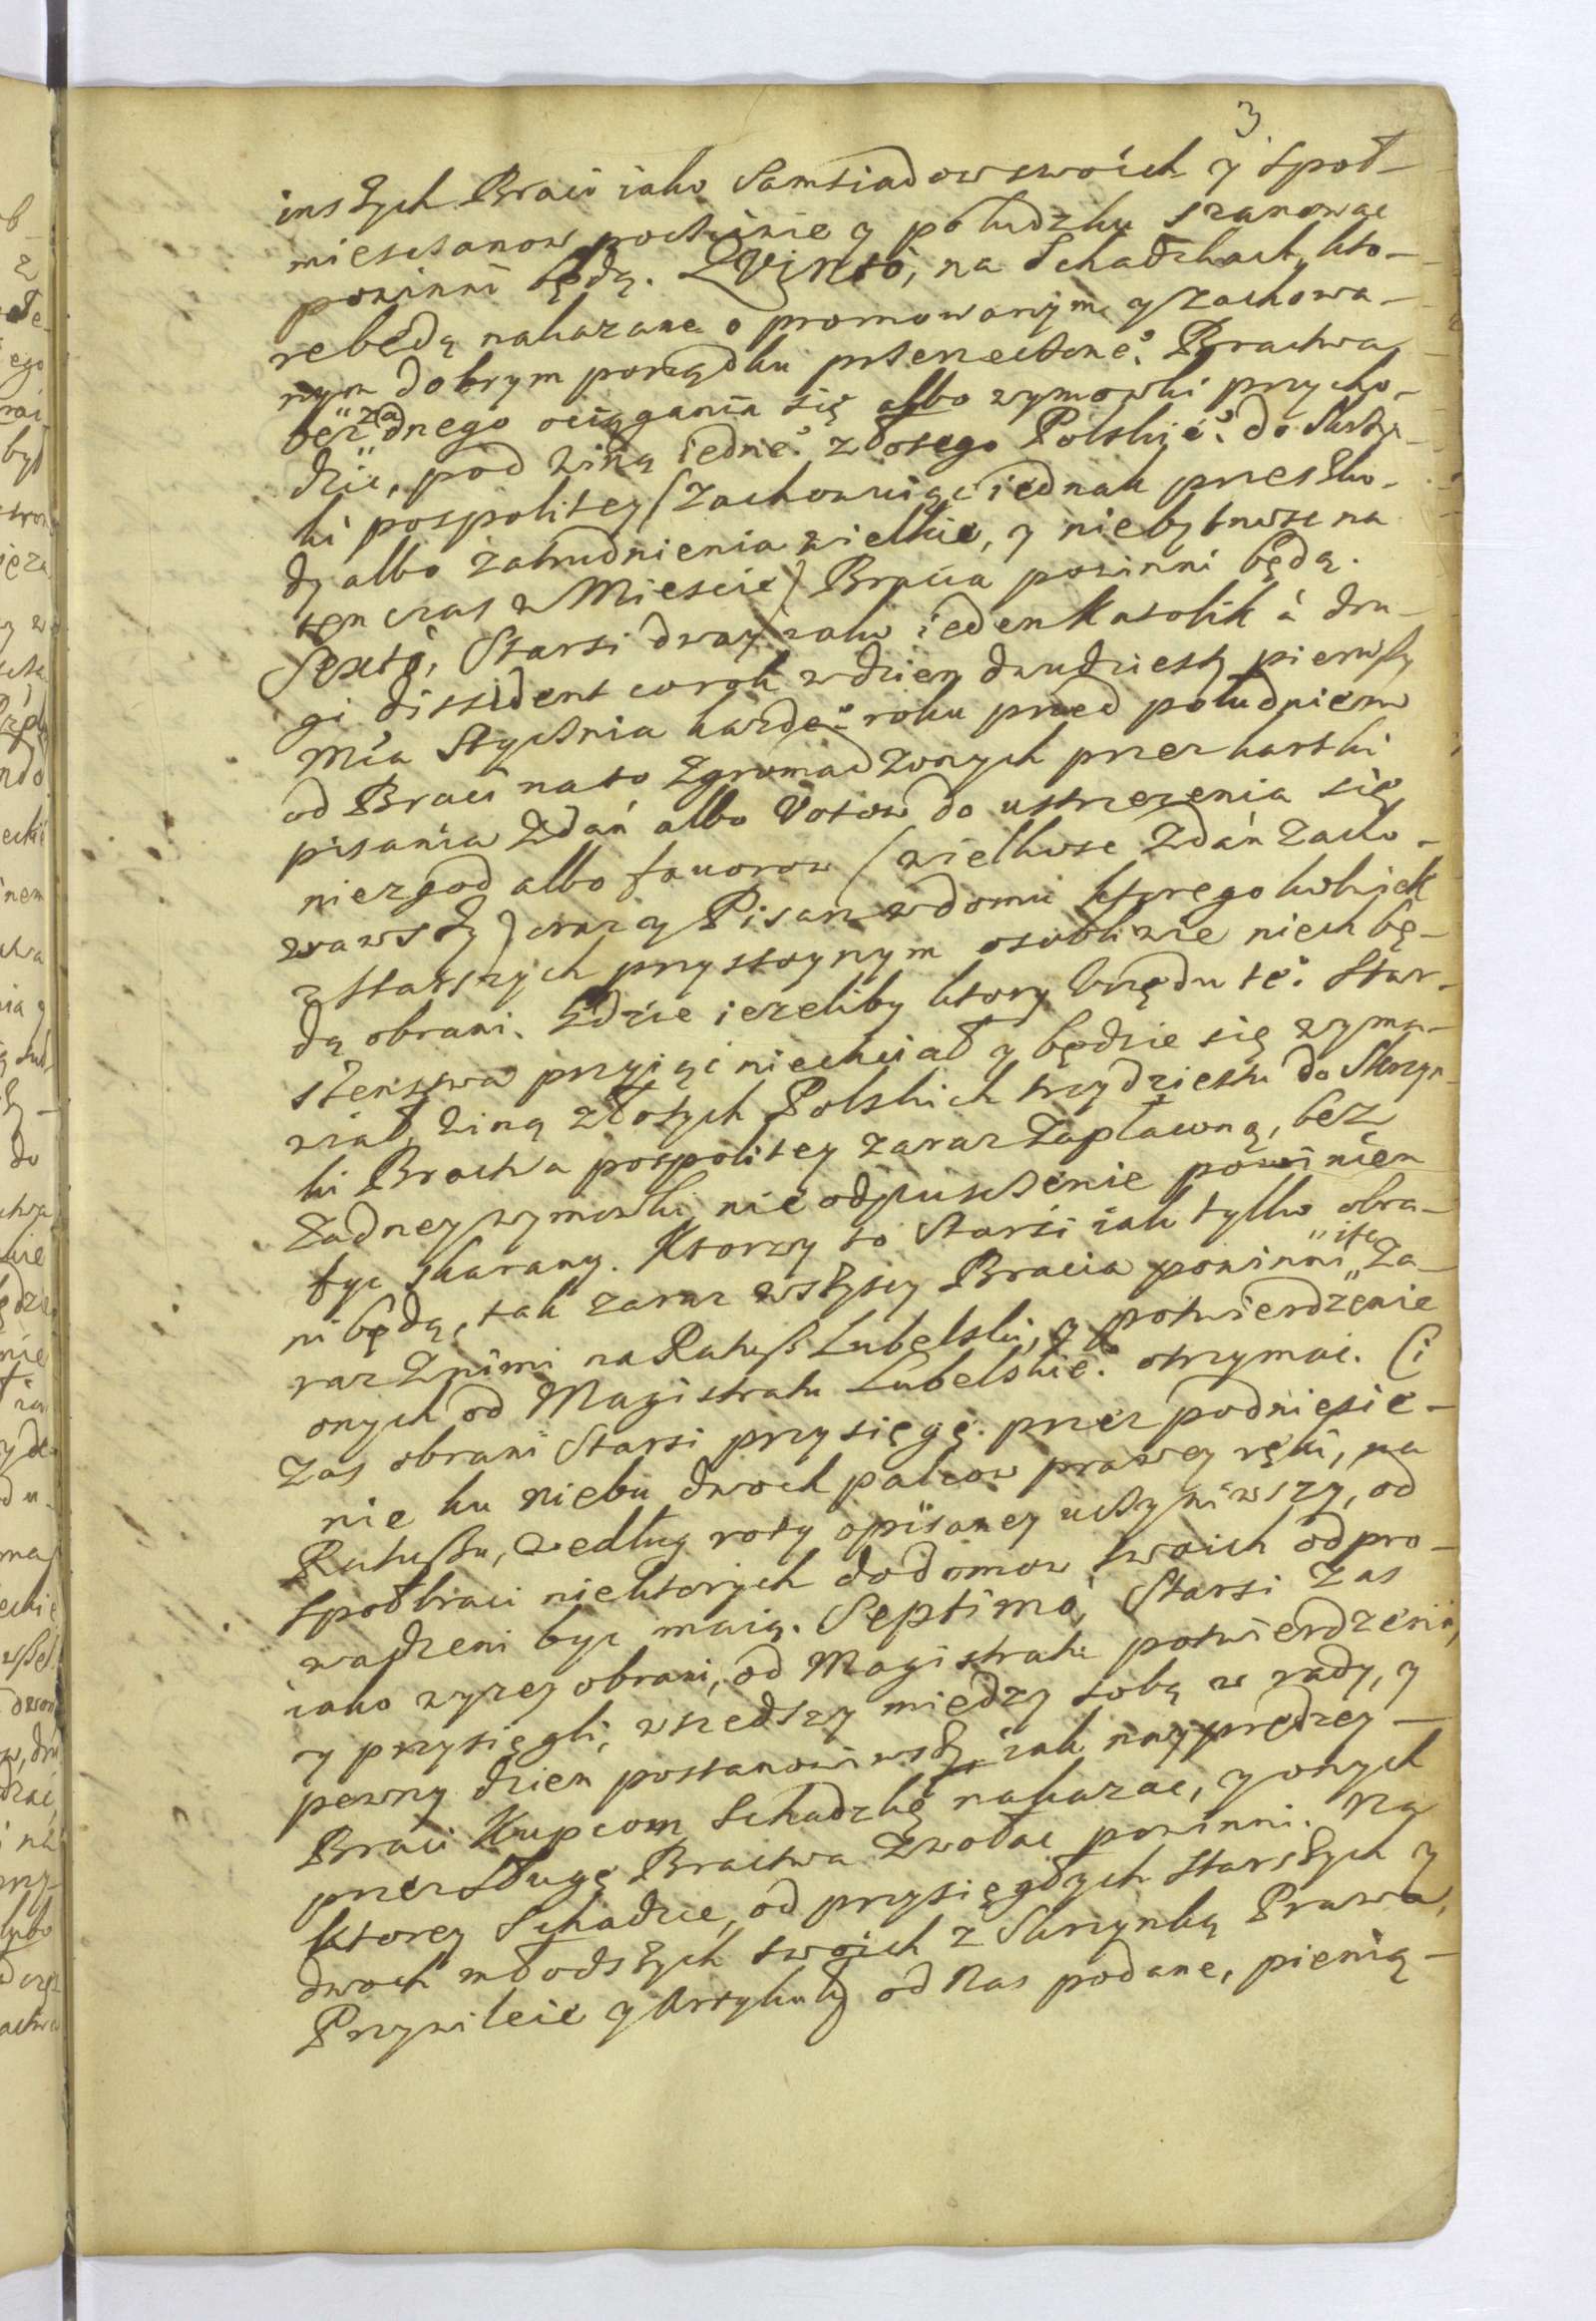 3
inszych Braci iako Samsiadow swoich y społ-
miesczanow poczciwie y poludzku szanowac
powinni będą. Qvinto, na Schadzkach, kto-
re będą nakazane o promowanym y zachowa-
nym dobrym porządku przerzeczone°: Bractwa,
bez żadnego ociągania się albo wymowki przycho-
dzic, pod winą iedne°: złotego Polskie°: do Skrzyn-
ki pospolitey (zachowuiąc iednak przeszko-
dy albo zatrudnienia wielkie, y niebytnosc na
ten czas w Miescie) Bracia powinni będą.
Sexto, Starsi dway iako ieden Katolik à dru-
gi dissident corok w dzien dwudziesty pierwszy
Mca Stycznia kazde°: roku przed południem
od Braci na to zgromadzonych przez kartki
pisania zdań albo Votow do ustrzezenia się
niezgod albo fauorow (wielkosc zdań zacho-
wawszy) oraz y Pisarz w domu ktoregokolwiek
z starszych przystoynym osobliwie niech bę-
dą obrani. Gdzie iezeliby ktory Urzędu te°: Star-
szenstwa przyiąc niechciał y będzie się wyma-
wiał, winą złotych Polskich trzydziestu do Skrzyn-
ki Bractwa pospolitey zaraz zapłacną, bez
żadney wymowki nieodpusczenie powinien
byc skarany. Ktorzy to Starsi iak tylko obra-
ni będą, tak zaraz wszyscy Bracia powinni isc za-
raz znimi na Ratusz Lubelski, y potwierdzenie
onych od Magistratu Lubelskie°: otrzymac. Ci
zas obrani Starsi przysięgę przez podniesie-
nie ku niebu dwoch palcow prawey ręki, na
Ratuszu, według roty opisaney uczyniwszy, od
społbraci niektorych do domow swoich odpro-
wadzeni byc maią. Septimo, Starsi zas
iako wyzey obrani, od Magistratu potwierdzeni,
y przysięgli, wszedszy między sobą w rady, y
pewny dzien postanowiwszy iak nayprędzey
Braci Kupcom Schadzkę nakazac, y onych
przez sługę Bractwa zwołac powinni. Na
ktorey Schadzce, od przysięgłych starszych y
dwoch młodszych swoich z Skrzynką Prawa,
Przywileie y Artykuły od Nas podane, pienią-